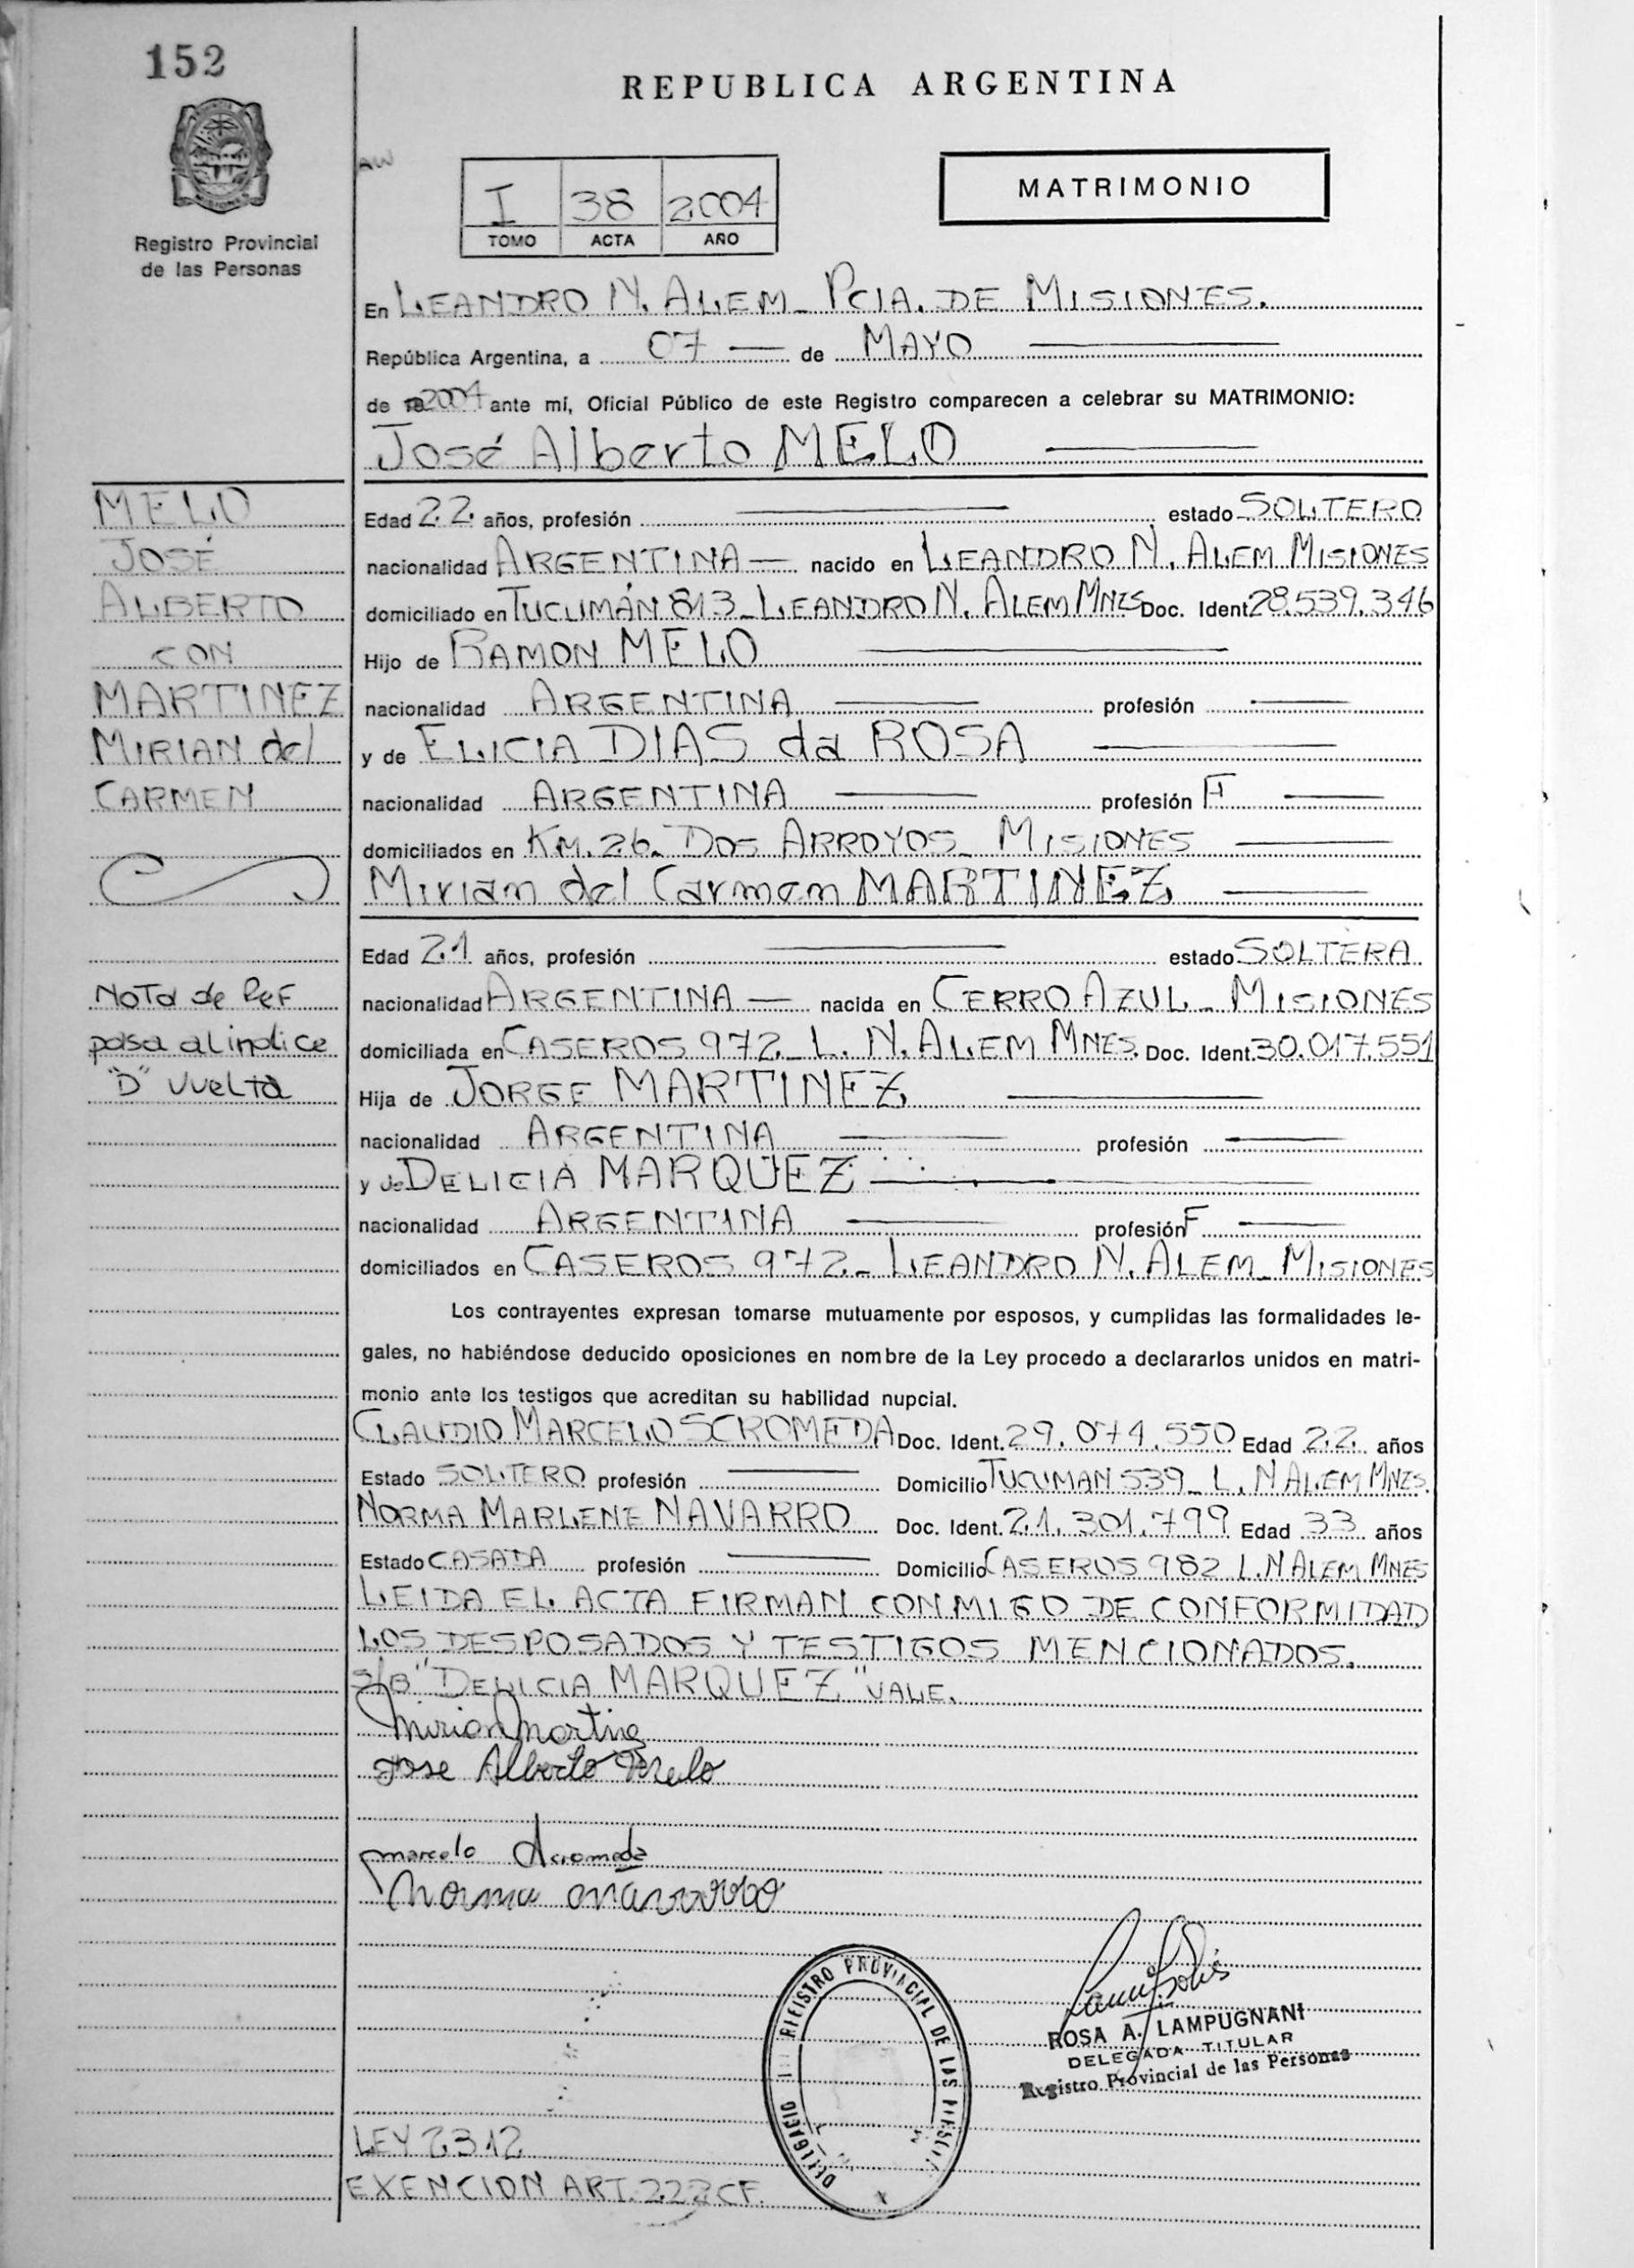 152
REPUBLICA ARGENTINA
MATRIMONIO
I 38 2004
TOMO ACTA AÑO
Registro Provincial
de las Personas
En LEANDRO N. ALEM - PCIA. DE MISIONES.
República Argentina, a 07 de MAYO
de 2004 ante mí, Oficial Público de este Registro comparecen a celebrar su MATRIMONIO:
José Alberto MELO
MELO
JOSÉ
ALBERTO
CON
MARTINEZ
MIRIAN del
CARMEN
Edad 22 años, profesión estado SOLTERO
nacionalidad ARGENTINA nacido en LEANDRO N. ALEM MISIONES
domiciliado en TUCUMÁN 813 - LEANDRO N. ALEM MNES Doc. Ident. 28.539.346
Hijo de RAMON MELO
nacionalidad ARGENTINA profesión
y de ELICIA DIAS da ROSA
nacionalidad ARGENTINA profesión F
domiciliados en KM. 26 - DOS ARROYOS - MISIONES
Mirian del Carmen MARTINEZ
Edad 21 años, profesión estado SOLTERA
nacionalidad ARGENTINA nacida en CERRO AZUL - MISIONES
domiciliada en CASEROS 972 - L. N. ALEM MNES. Doc. Ident. 30.017.551
Hija de JORGE MARTINEZ
nacionalidad ARGENTINA profesión
y de DELICIA MARQUEZ
nacionalidad ARGENTINA profesión F
domiciliados en CASEROS 972 - LEANDRO N. ALEM - MISIONES
Nota de Ref
pasa al indice
"D" vuelta
Los contrayentes expresan tomarse mutuamente por esposos, y cumplidas las formalidades le-
gales, no habiéndose deducido oposiciones en nombre de la Ley procedo a declararlos unidos en matri-
monio ante los testigos que acreditan su habilidad nupcial.
CLAUDIO MARCELO SCROMEDA Doc. Ident. 29.074.550 Edad 22 años
Estado SOLTERO profesión Domicilio TUCUMAN 539 - L. N ALEM MNES.
NORMA MARLENE NAVARRO Doc. Ident. 21.301.799 Edad 33 años
Estado CASADA profesión Domicilio CASEROS 982 L.N ALEM MNES
LEIDA EL ACTA FIRMAN CONMIGO DE CONFORMIDAD
LOS DESPOSADOS Y TESTIGOS MENCIONADOS.
S/B "DELICIA MARQUEZ" VALE.
Mirian Martinez
Jose Alberto Melo
marcelo Scromeda
Norma Navarro
ROSA A. LAMPUGNANI
DELEGADA TITULAR
Registro Provincial de las Personas
REGISTRO PROVINCIAL DE LAS
LEY 2312
EXENCION ART. 222 CF.